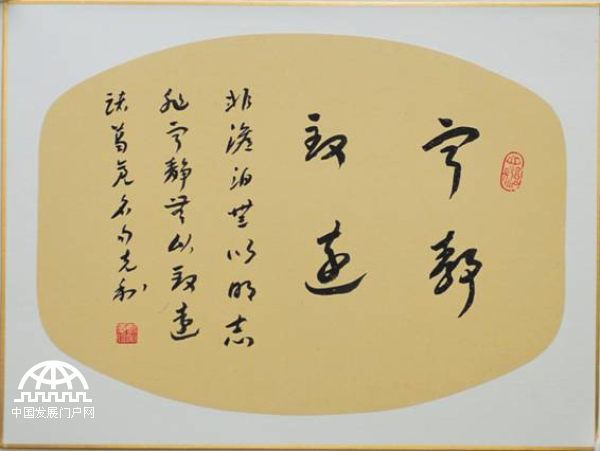 宁静
致远
非澹泊無以明志
非宁静無以致远
诸葛亮名句克利
中国发展门户网